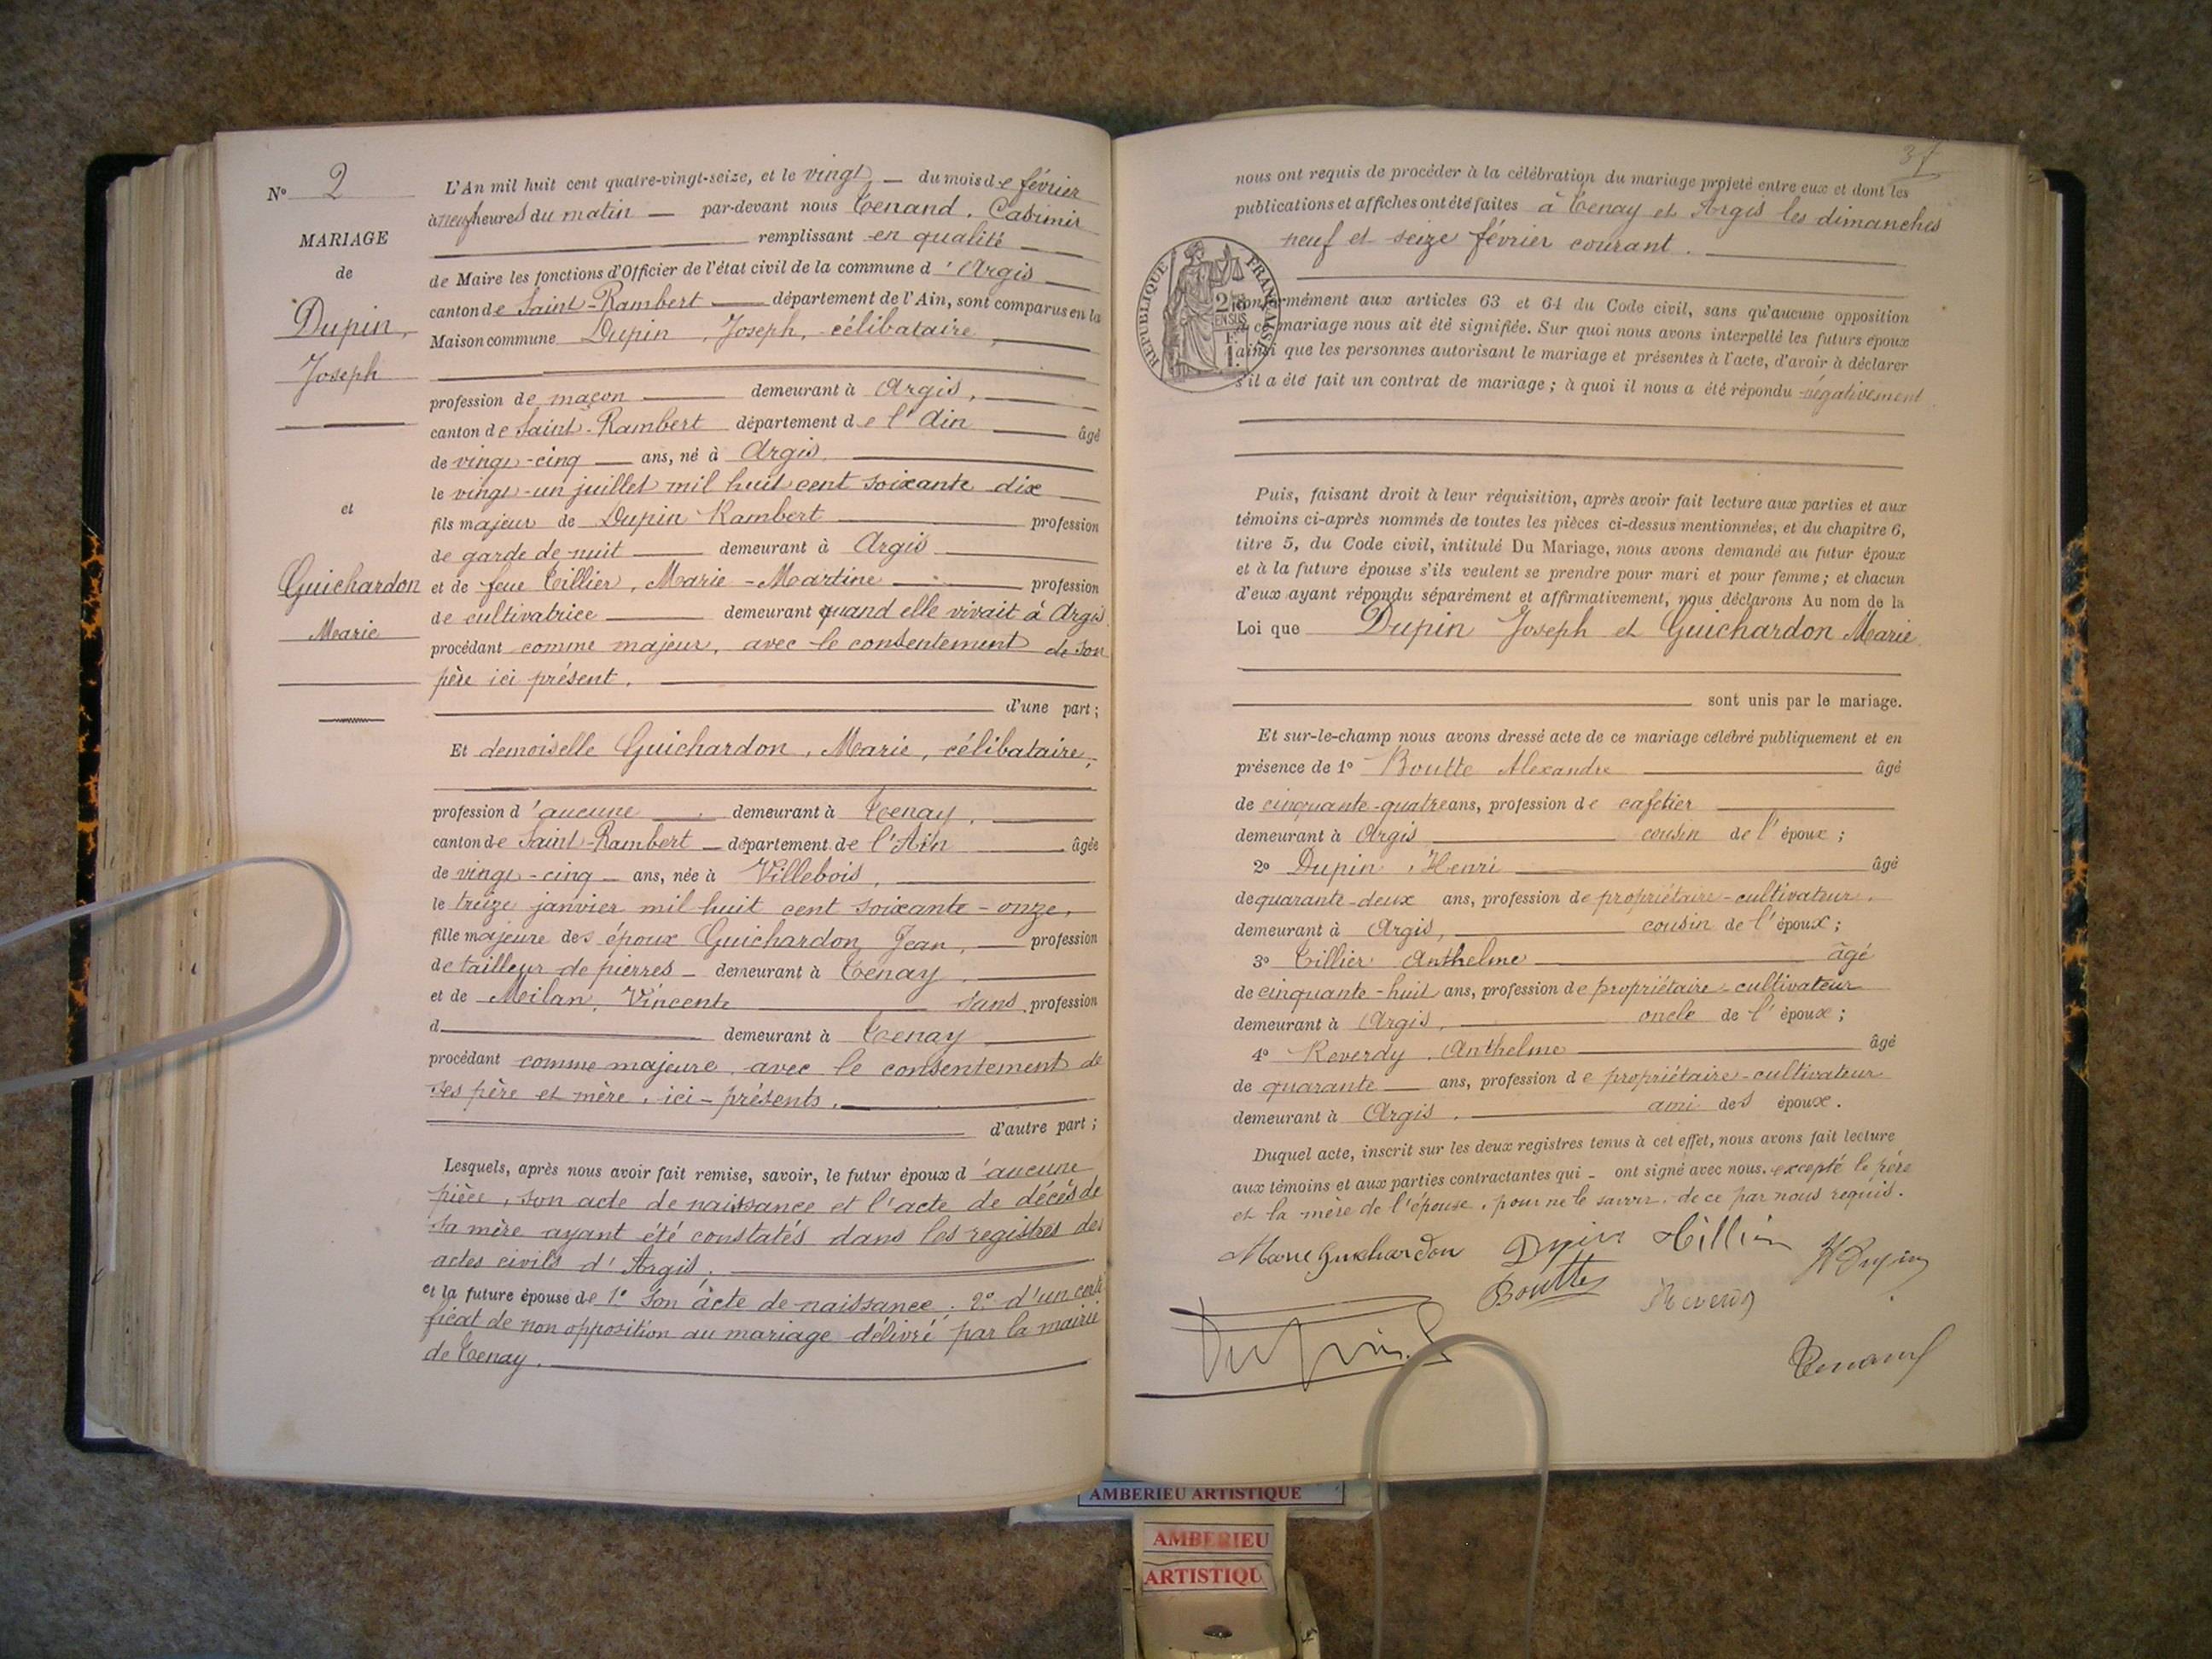 N° 2
MARIAGE
de
Dupin,
Joseph
et
Guichardon
Marie
L'An mil huit cent quatre-vingt-seize, et le vingt du mois de février
à neuf heures du matin par-devant nous Tenand, Casimir
remplissant en qualité
de Maire les fonctions d'Officier de l'état civil de la commune d'Argis
canton de Saint-Rambert département de l'Ain, sont comparus en la
Maison commune Dupin, Joseph, célibataire,
profession de maçon demeurant à Argis,
canton de Saint-Rambert département de l'Ain âgé
de vingt-cinq ans, né à Argis,
le vingt-un juillet mil huit cent soixante dix
fils majeur de Dupin Rambert profession
de garde de nuit demeurant à Argis
et de feue Tillier, Marie-Martine profession
de cultivatrice demeurant quand elle vivait à Argis
procédant comme majeur, avec le consentement de son
père ici présent.
d'une part;
Et demoiselle Guichardon, Marie, célibataire,
profession d'aucune demeurant à Tenay,
canton de Saint-Rambert département de l'Ain âgée
de vingt-cinq ans, née à Villebois,
le treize janvier mil huit cent soixante-onze,
fille majeure des époux Guichardon, Jean, profession
de tailleur de pierres demeurant à Tenay
et de Meilan, Vincente sans profession
d demeurant à Tenay
procédant comme majeure, avec le consentement de
ses père et mère, ici-présents.
d'autre part;
Lesquels, après nous avoir fait remise, savoir, le futur époux d'aucune
pièce, son acte de naissance et l'acte de décès de
sa mère ayant été constatés dans les registres des
actes civils d'Argis.
et la future épouse de 1° son acte de naissance. 2° d'un certi
ficat de non opposition au mariage délivré par la mairie
de Tenay.
37
nous ont requis de procéder à la célébration du mariage projeté entre eux et dont les
publications et affiches ont été faites à Tenay et Argis les dimanches
neuf et seize février courant.
RÉPUBLIQUE FRANÇAISE
conformément aux articles 63 et 64 du Code civil, sans qu'aucune opposition
à ce mariage nous ait été signifiée. Sur quoi nous avons interpellé les futurs époux
ainsi que les personnes autorisant le mariage et présentes à l'acte, d'avoir à déclarer
s'il a été fait un contrat de mariage; à quoi il nous a été répondu négativement
Puis, faisant droit à leur réquisition, après avoir fait lecture aux parties et aux
témoins ci-après nommés de toutes les pièces ci-dessus mentionnées, et du chapitre 6,
titre 5, du Code civil, intitulé Du Mariage, nous avons demandé au futur époux
et à la future épouse s'ils veulent se prendre pour mari et pour femme; et chacun
d'eux ayant répondu séparément et affirmativement, nous déclarons Au nom de la
Loi que Dupin Joseph et Guichardon Marie
sont unis par le mariage.
Et sur-le-champ nous avons dressé acte de ce mariage célébré publiquement et en
présence de 1° Boutte Alexandre âgé
de cinquante-quatre ans, profession de cafetier
demeurant à Argis cousin de l'époux;
2° Dupin, Henri âgé
de quarante-deux ans, profession de propriétaire-cultivateur,
demeurant à Argis, cousin de l'époux;
3° Tillier Anthelme âgé
de cinquante-huit ans, profession de propriétaire-cultivateur
demeurant à Argis, oncle de l'époux;
4° Reverdy, Anthelme âgé
de quarante ans, profession de propriétaire-cultivateur
demeurant à Argis, ami des époux.
Duquel acte, inscrit sur les deux registres tenus à cet effet, nous avons fait lecture
aux témoins et aux parties contractantes qui ont signé avec nous, excepté le père
et la mère de l'épouse, pour ne le savoir, de ce par nous requis.
Marie Guichardon Dupin Tillier H Dupin
Boutte Reverdy
Dupin
Tenand
AMBERIEU ARTISTIQUE
AMBERIEU
ARTISTIQU